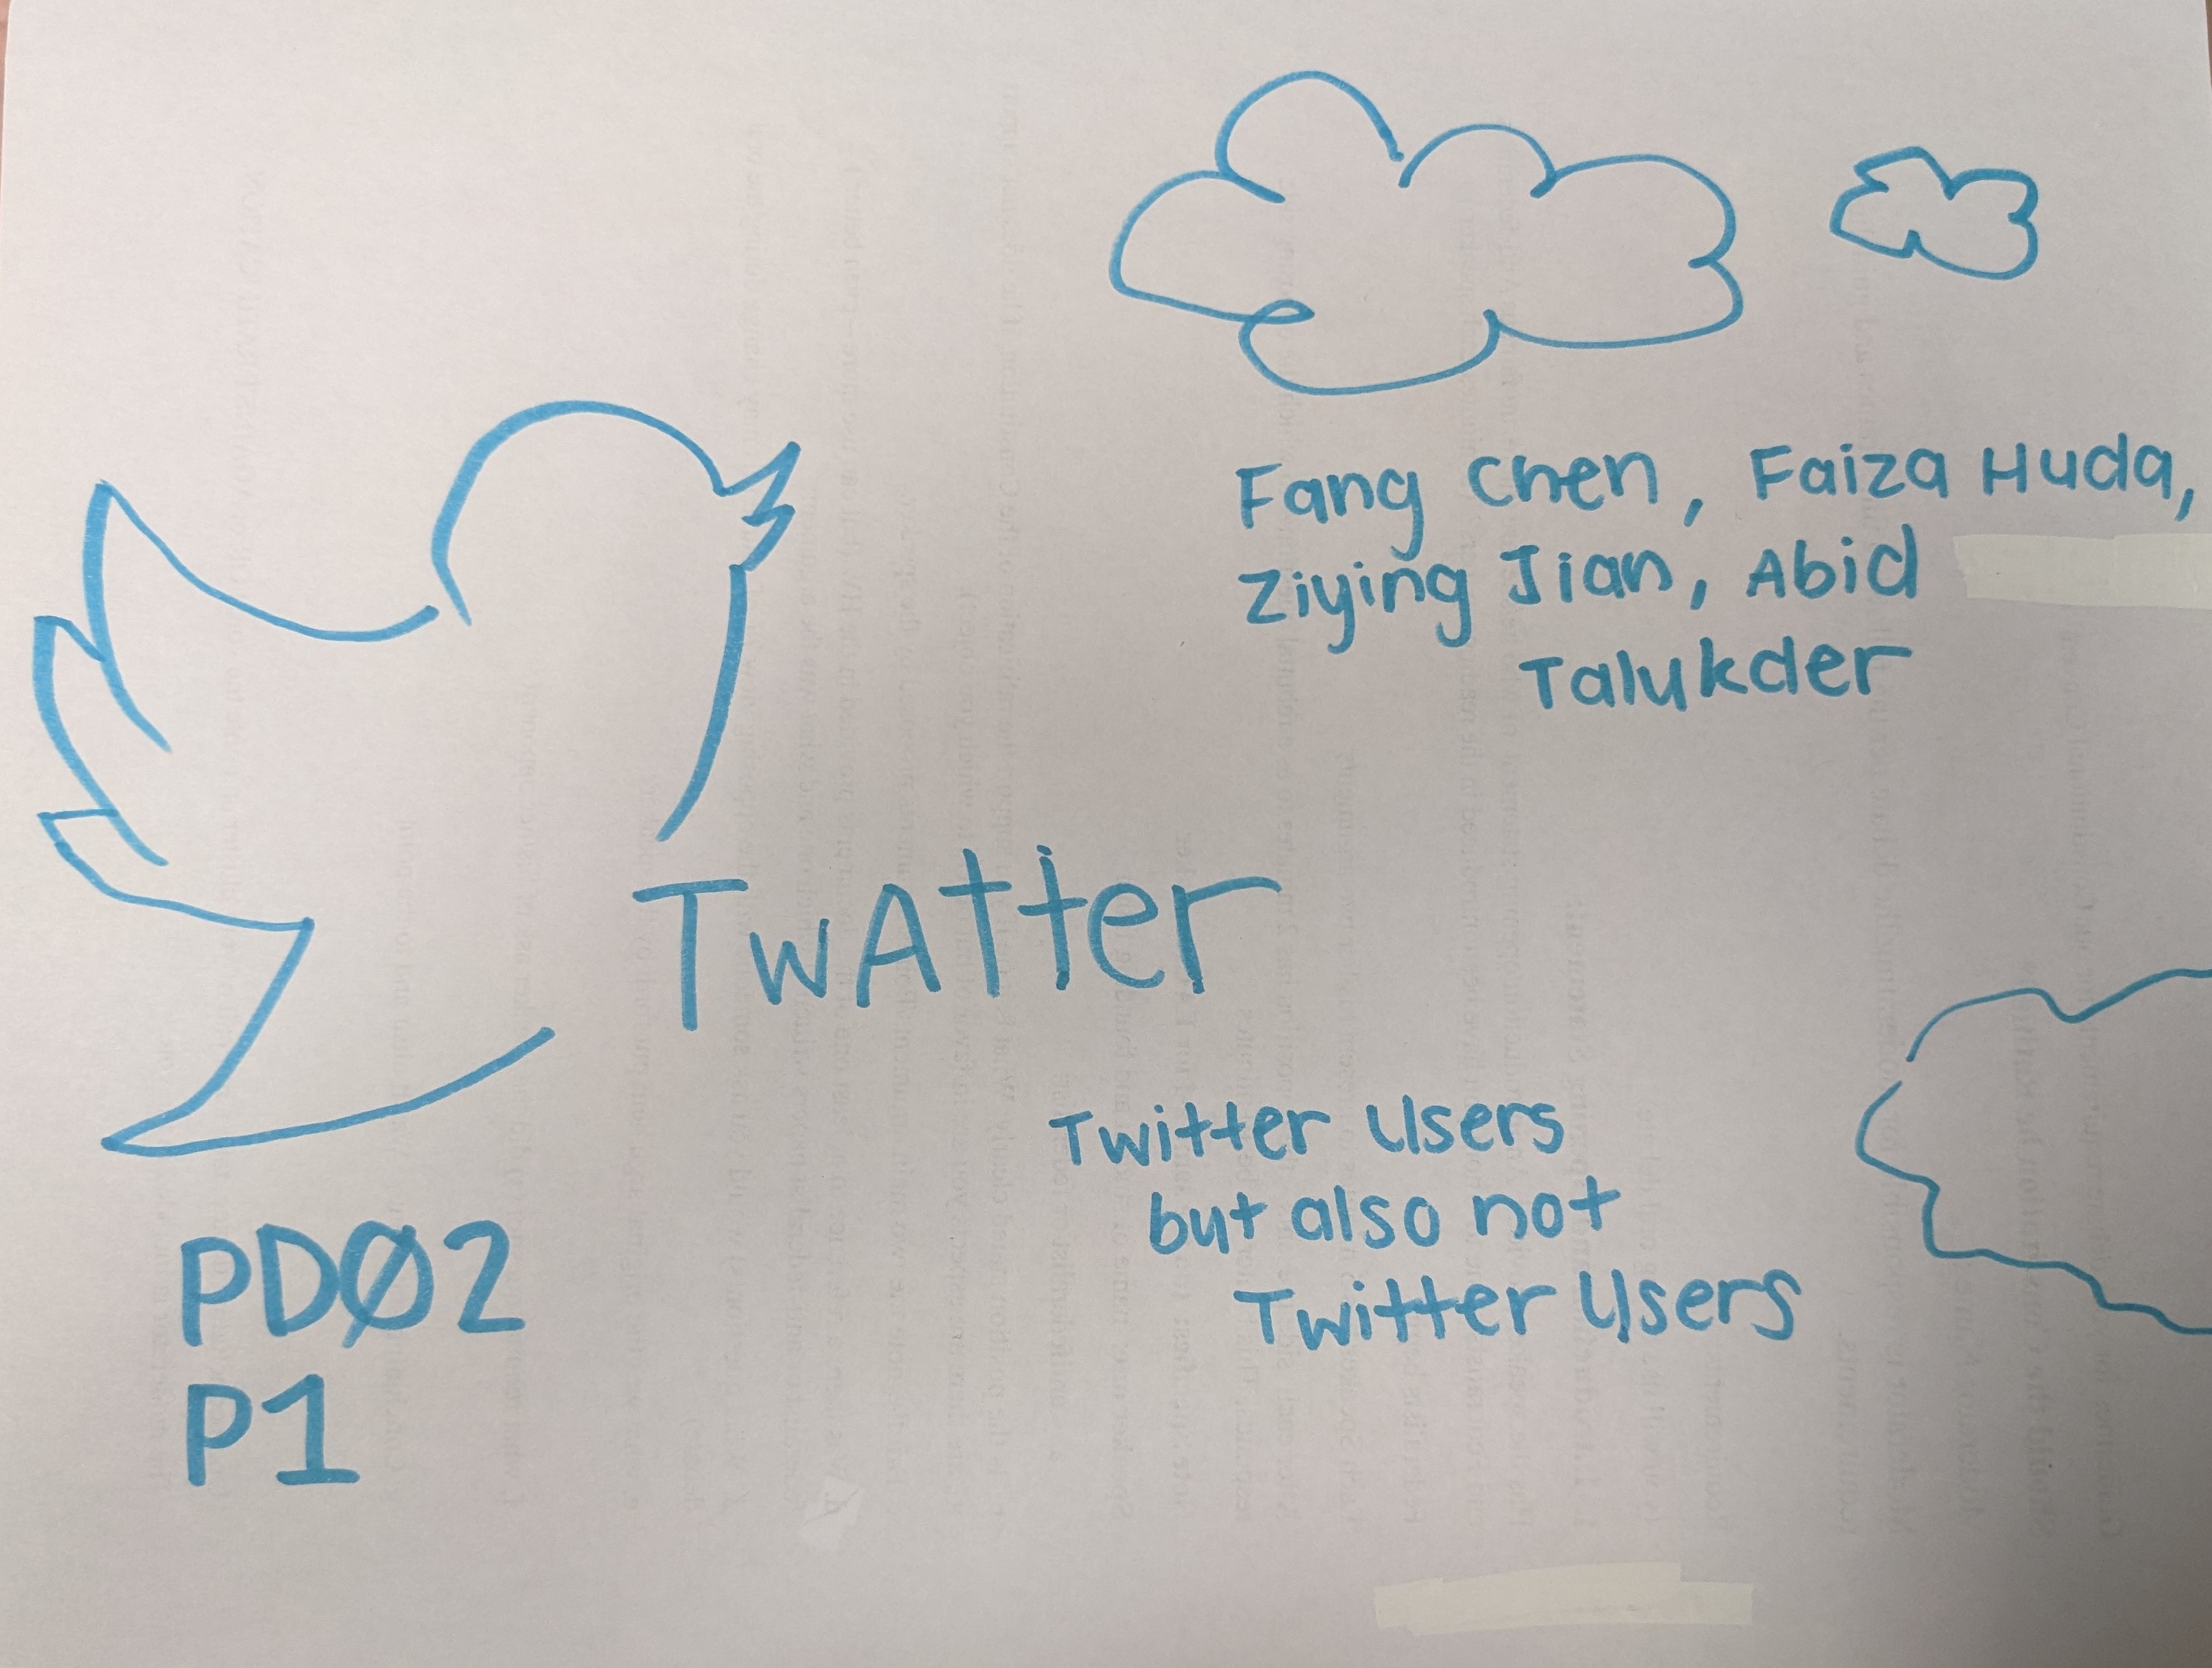 Fang Chen, Faiza Huda,
Ziying Jian, Abid
Talukder
TwAtter
Twitter Users
but also not
Twitter Users
PDØ2
P1